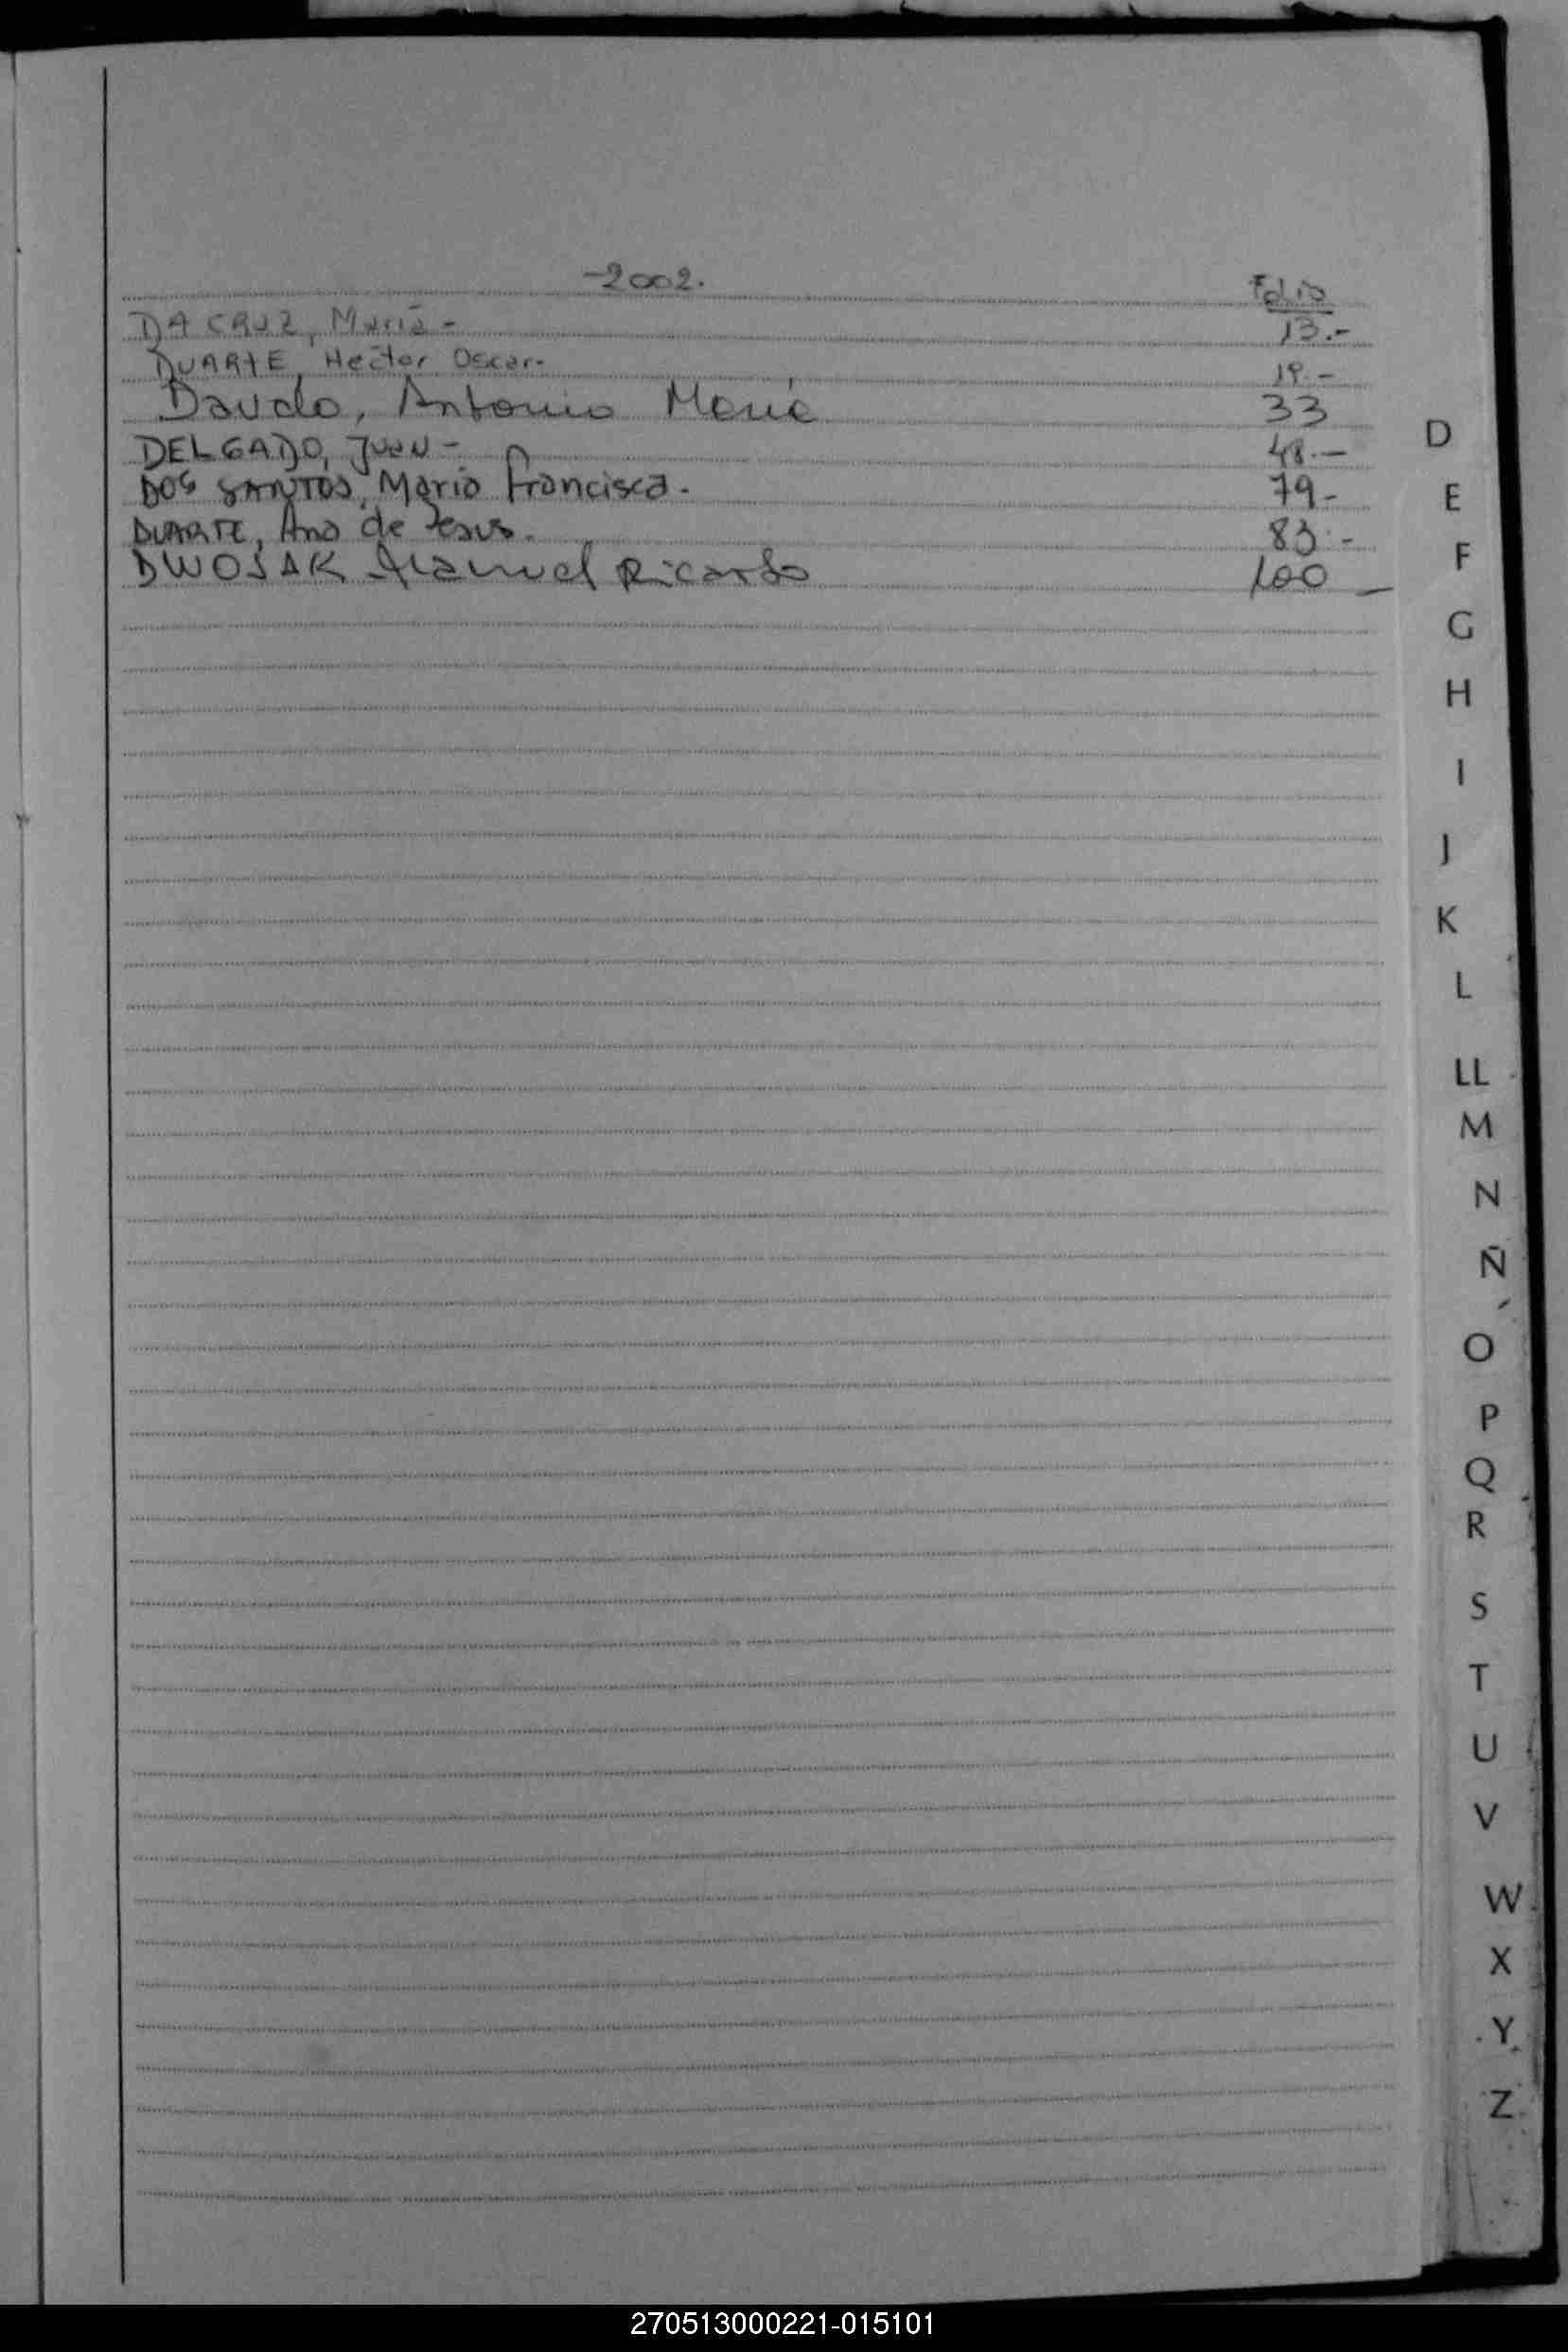 -2002.
Folio
DA CRUZ, María - 13.-
DUARTE, Hector Oscar.- 19.-
Davalo, Antonio María 33
DELGADO, Juan - 48.-
DOS SANTOS, María Francisca. 79-
DUARTE, Ana de Jesus. 83.-
DWOSAK Manuel Ricardo 100
D
E
F
G
H
I
J
K
L
LL
M
N
Ñ
O
P
Q
R
S
T
U
V
W
X
Y
Z
270513000221-015101